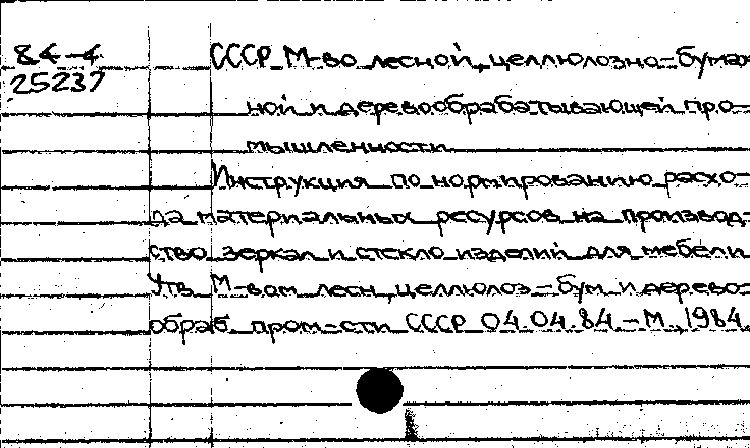 84-4
25237
СССР М-во лесной, целлюлозно-бумаж
ной и деревообрабатывающей про-
мышленности.
Инструкция по нормированию расхо-
да материальных ресурсов на производ-
ство зеркал и стекло изделий для мебели
Утв М-вом лесн, целлюлоз-бум и дерево-
обраб. пром-сти СССР 04.04.84 - М., 1984.